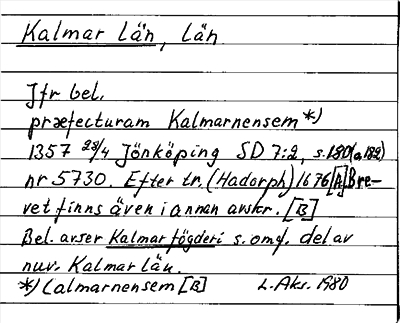 Kalmar län, län
Jfr bel.
præfecturam Kalmarnensem *)
1357 28/4 Jönköping SD 7:2, s. 180 (a, 182)
nr 5730. Efter tr. (Hadorph) 1676 [A] Bre-
vet finns även i annan avskr. [B]
Bel. avser Kalmar fögderi s. omf. del av
nuv. Kalmar län.
*) Calmarnensem [B] L. Aks. 1980